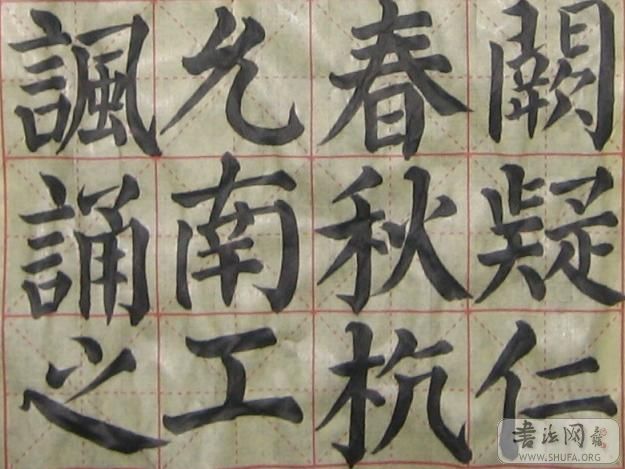 闕疑仁
春秋杭
允南工
諷誦之
書法网
WWW.SHUFA.ORG